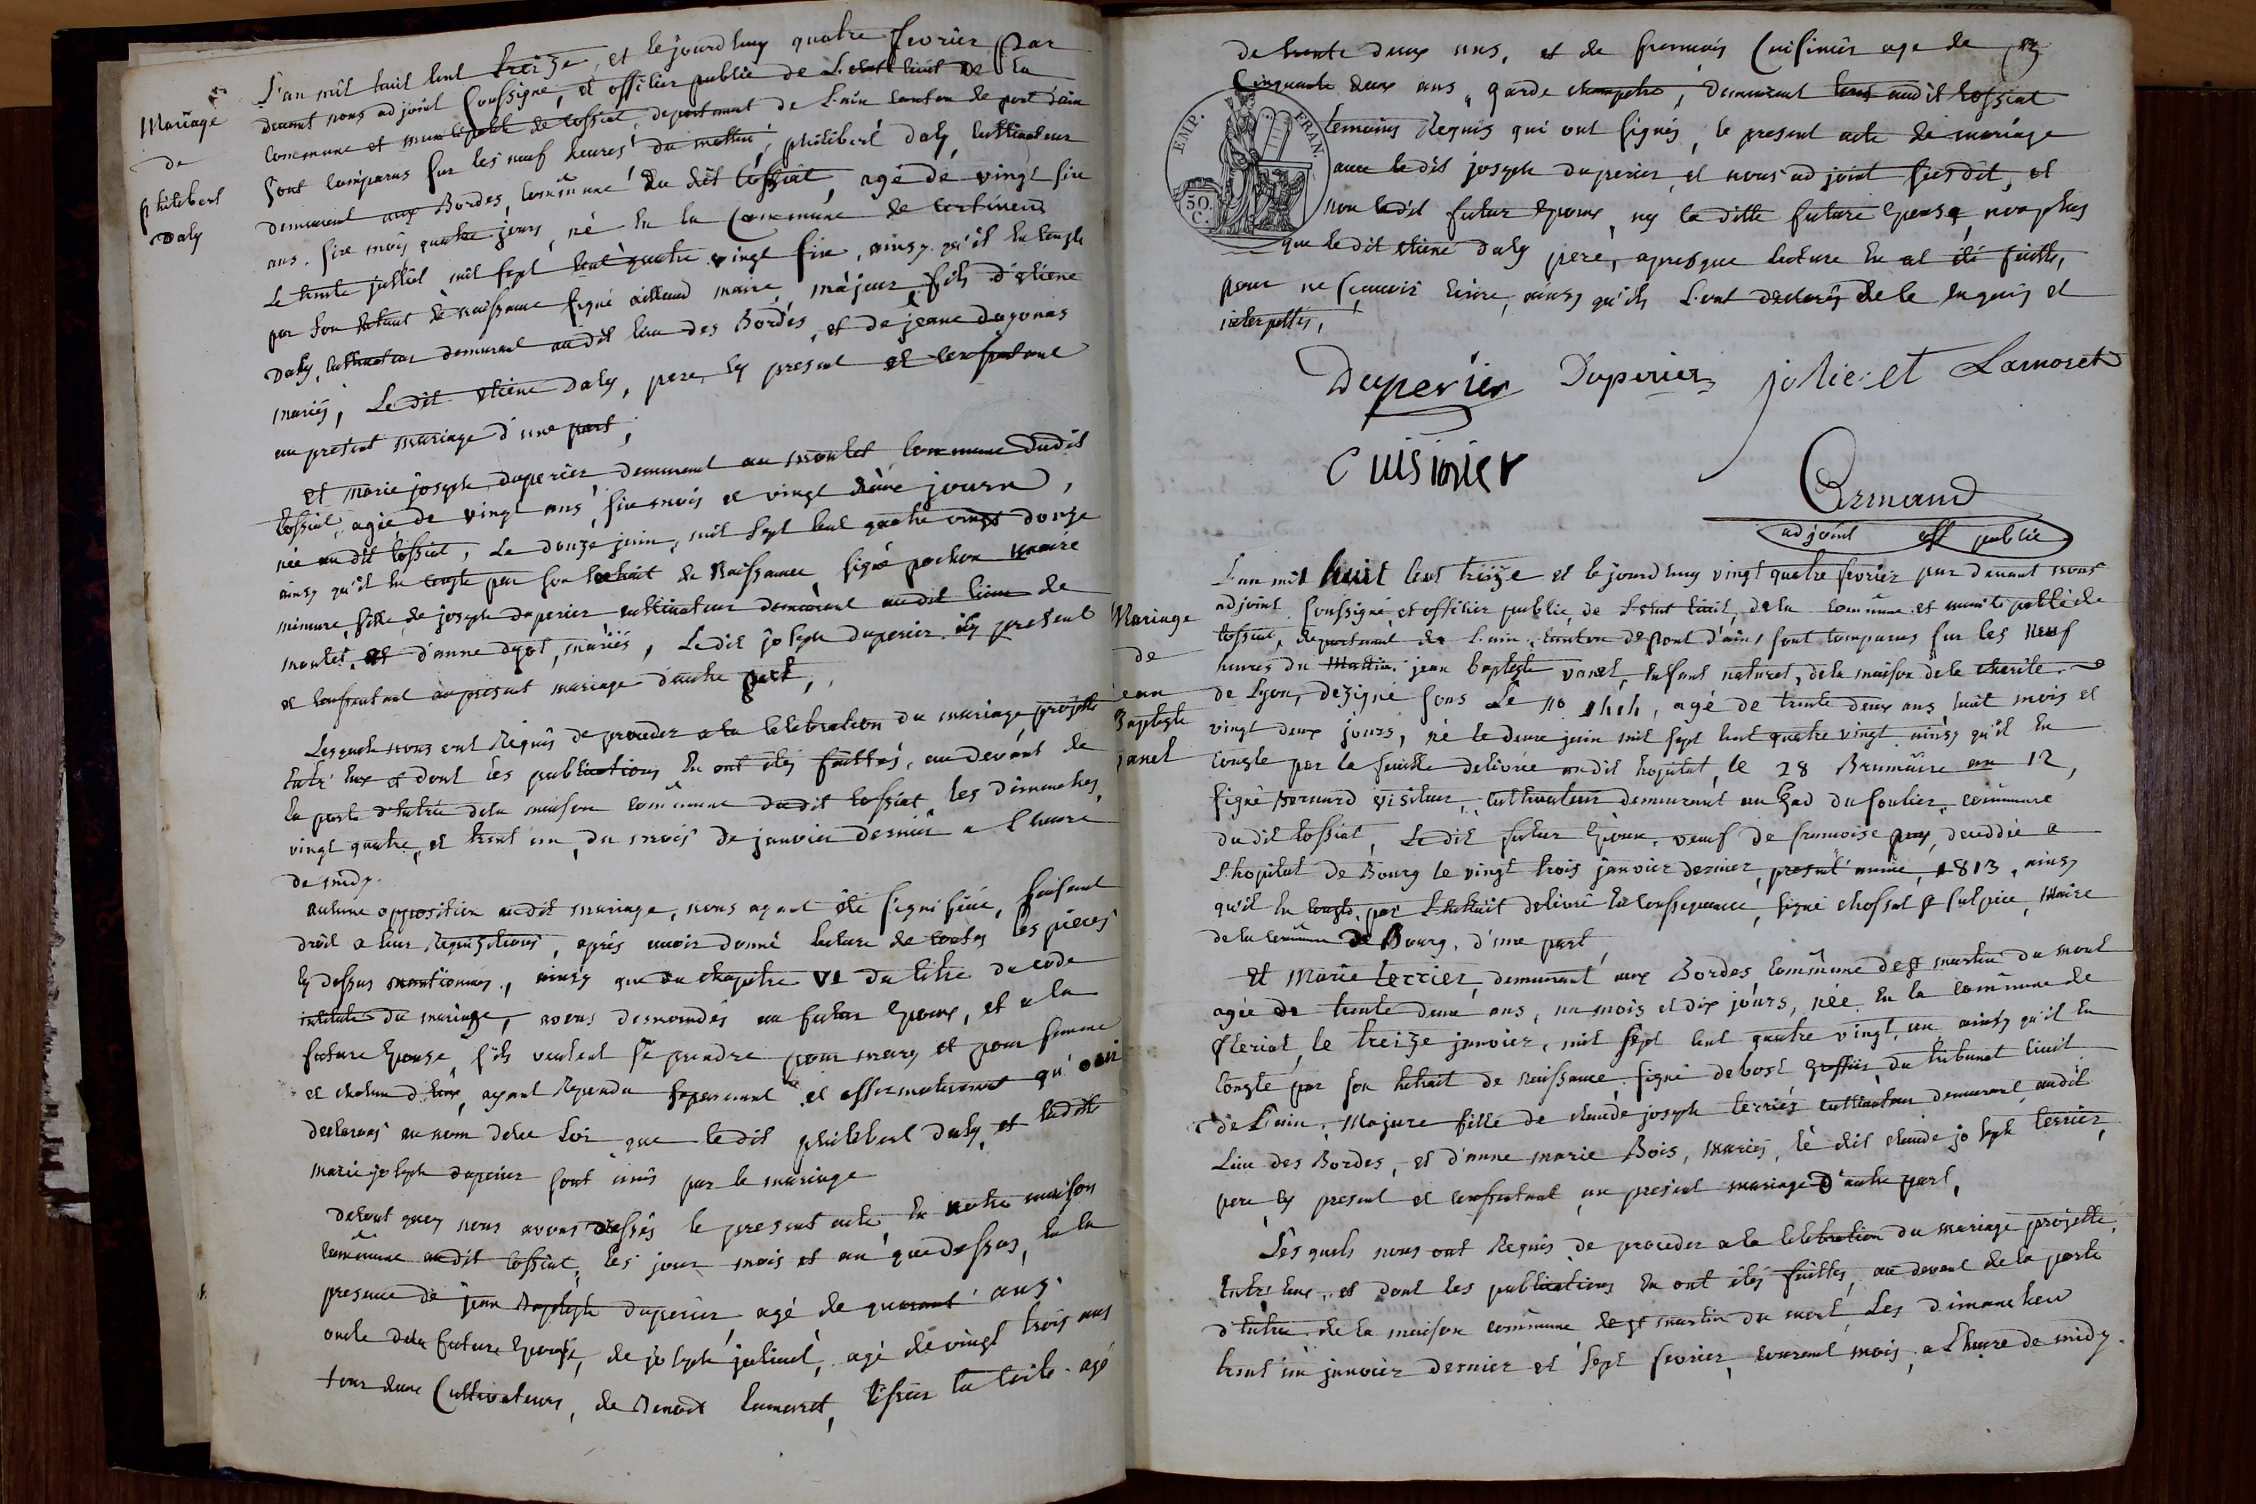 Mariage
de
philibert
Daly
L'an mil huit cent treize, et le jourd'huy quatre fevrier par
devant nous adjoint soussigné, et officier public de L'etat civil de la
commune et municipalité de tossiat, departement de L'ain canton de pont d'ain
sont comparus sur les neuf heures du mattin, philibert daly, cultivateur
demeurant aux Bordes, commune du dit tossiat, agé de vingt six
ans. six mois quatre jours, né en la Commune de
Le trente juillet mil sept cent quatre vingt six, ainsy qu'il en conste
par son extrait de naissance signé maire, majeur fils d'etiene
Daly, cultivateur demeurant au dit lieu des Bordes, et de jeane dagonas
mariés, Le dit etiene Daly, pere cy present et consentant
au present mariage d'une part,
et marie joseph duperier demeurant au moulet commune dudit
tossiat, agée de vingt ans, six mois et vingt deux jours,
née au dit tossiat, Le douze juin, mil sept cent quatre vingt douze
ainsy qu'il en conste par son extrait de Naissance signé pochon maire
mineure, fille de joseph duperier cultivateur demeurant au dit lieu de
moulet, et d'anne dyot, mariés, Le dit joseph duperier icy present
et consentant au present mariage d'autre part,
Lesquels nous ont Requis de proceder a la celebration du mariage projetté
entre eux et dont les publications en ont étés faittes, au devant de
la porte d'entrée de la maison commune du dit tossiat les dimanches
vingt quatre, et trent un, du mois de janvier dernier a l'heure
de midy.
aucune opposition au dit mariage, nous ayant été signifiée, faisant
droit a leur Requisitions, aprés avoir donné lecture de toutes les pieces
cy dessus mentionnés, ainsy que du chapitre VI du titre du code
intitulé du mariage, avons demandés au futur Epoux, et a la
future Epouse, s'ils veulent se prendre pour mary et pour femme
et chacun d'eux, ayant Repondu separement et affirmativement qu'oui
declarons au nom de la Loi que le dit philibert daly, et la ditte
marie joseph duperier sont unis par le mariage
de tout quoy nous avons dressés le present acte en notre maison
commune au dit tossiat, les jour mois et an que dessus, en la
presence de jean Baptiste duperier, agé de quarant' ans
oncle de la future Epouse, de joseph joliect, agé de vingt trois ans
tous deux Cultivateurs, de Benoit Lamoret, tissier en toile agé
de trente deux ans, et de francois Cuisinier age de
Cinquante deux ans, garde champetre, demeurant tous audit tossiat
EMP. FRAN.
50. C.
temoins Requis qui ont signés, le present acte de mariage
avec le dit joseph duperier, et nous adjoint susdit, et
non le dit futur Epoux, ny la ditte future Epouse, non plus
que le dit etiene daly pere, apres que lecture en at été faitte,
pour ne sçauoir ecrire, ainsy qu'ils L'ont declarés de le enquis et
interpellés,
Duperier Duperier joliect Lamoret
Cuisinier
Armand
adjoint off public
Mariage
de
jean
Baptiste
janet
L'an mil huit cent treize et le jourd'huy vingt quatre fevrier par devant nous
adjoint soussigné, et officier public, de L'etat civil, de la commune et municipalité de
tossiat, departement de L'ain, canton de Pont d'ain, sont comparus sur les neuf
heures du Mattin, jean baptiste vanet, enfant naturel, de la maison de la charité
de Lyon, dezigné sous Le no, agé de trente deux ans huit mois et
vingt deux jours, né le deux juin mil sept cent quatre vingt ainsy qu'il en
conste par la feuille delivrée audit hopital, le 28 Brumaire an 12,
signé Bernard visiteur, cultivateur demeurant au gad du soulier, commune
du dit tossiat, Le dit futur Epoux, veuf de francoise puy, deceddée a
L'hopital de Bourg le vingt trois janvier dernier, present' année, 1813, ainsy
qu'il en conste par L'extrait delivré en consequence, signé chossat st sulpice, maire
de la commune de Bourg, d'une part,
et Marie terrier, demeurant aux Bordes commune de st martin du mont
agée de trente deux ans, un mois et dix jours, née en la commune de
Meriat, le treize janvier, mil sept cent quatre vingt un ainsy qu'il en
conste par son extrait de naissance signé debost greffier du tribunal civil
de L'ain, Majure fille de claude joseph terrier cultivateur demeurant, audit
Lieu des Bordes, et d'anne marie Bois, mariés, le dit claude joseph terrier,
pere cy present et consentant, au present mariage d'autre part,
Lesquels nous ont Requis de proceder a la celebration du mariage projetté,
entre eux, et dont les publications en ont étés faittes, au devant de la porte
d'entrée de la maison commune de st martin du mont, Les dimanches
trent'un janvier dernier et sept fevrier, courent mois, a L'heure de midy.